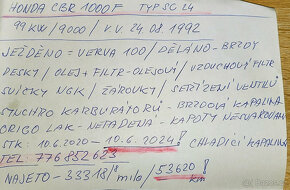 HONDA CBR 1000F TYP SC 24
99 KW / 9000 / V.V. 24.08.1992
JEŽDĚNO = VERVA 100 / DĚLÁNO - BRZDY
DESKY / OLEJ FILTR - OLEJOVÝ / VZDUCHOVÝ FILTR
SVÍČKY NGK / ŽÁROVKY / SEŘÍZENÍ VENTILŮ
SYNCHRO KARBURÁTORŮ - BRZDOVÁ KAPALINA
ORIGO LAK - NEPADENÁ - KAPOTY NESVAROVANÉ
STK: 10.6.2020 - 10.6.2024! CHLADÍCÍ KAPALINA
TEL: 776852623
NAJETO - 33318 / míle / 53620 km!